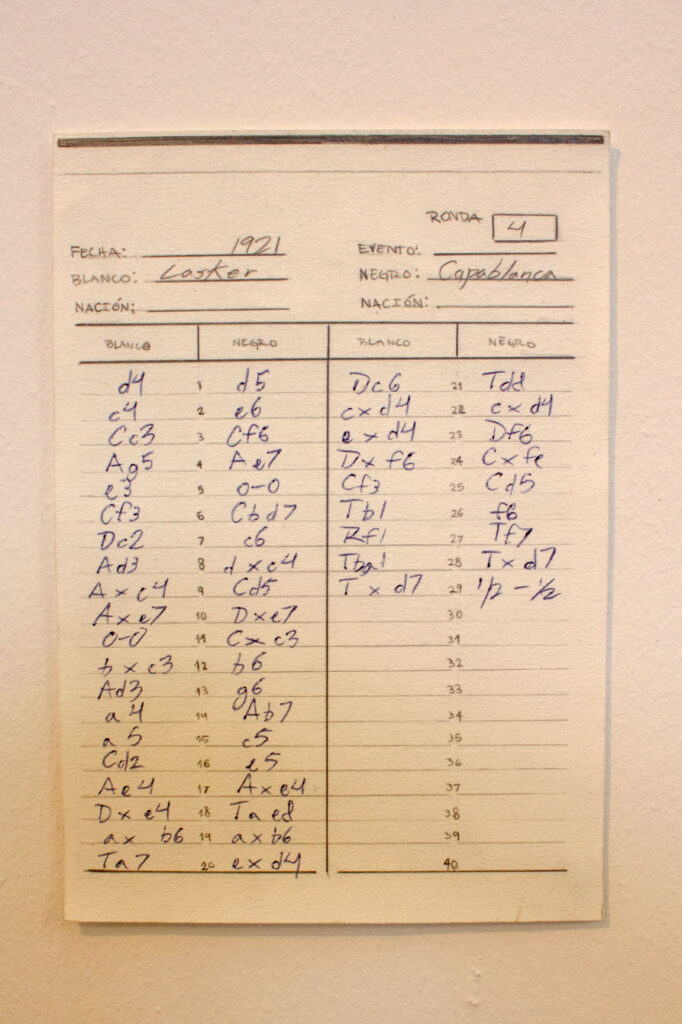 RONDA 4
FECHA: 1921 EVENTO:
BLANCO: Lasker NEGRO: Capablanca
NACIÓN: NACIÓN:
BLANCO NEGRO BLANCO NEGRO
d4 1 d5 Dc6 21 Td8
c4 2 e6 cxd4 22 cxd4
Cc3 3 Cf6 exd4 23 Df6
Ag5 4 Ae7 Dxf6 24 Cxfe
e3 5 0-0 Cf3 25 Cd5
Cf3 6 Cbd7 Tb1 26 f6
Dc2 7 c6 Rf1 27 Tf7
Ad3 8 dxc4 28 Txd7
Axc4 9 Cd5 Txd7 29 1/2-1/2
Axe7 10 Dxe7 30
0-0 11 Cxc3 31
bxc3 12 b6 32
Ad3 13 g6 33
a4 14 Ab7 34
a5 15 c5 35
Cd2 16 e5 36
Ae4 17 Axe4 37
Dxe4 18 Tae8 38
axb6 19 axb6 39
Ta7 20 exd4 40